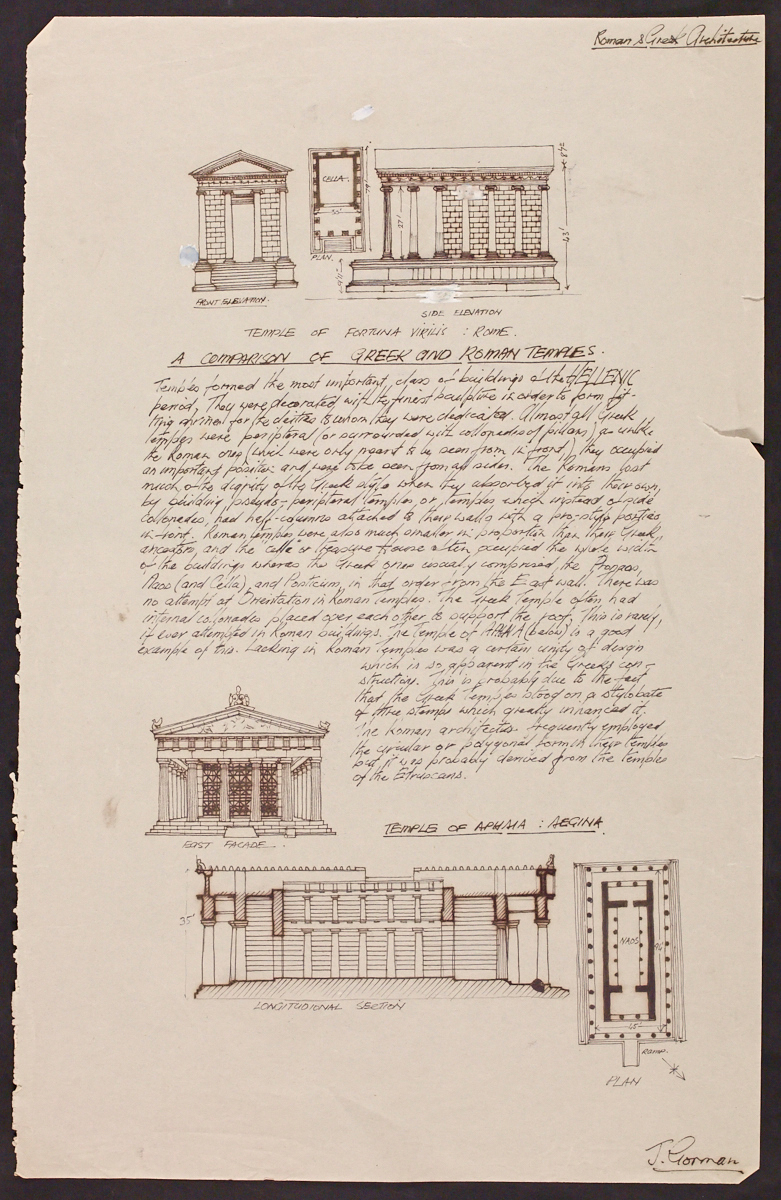 Roman & Greek Architecture
CELLA
35'
74'
PLAN.
27'
8'4"
43'
FRONT ELEVATION.
SIDE ELEVATION
TEMPLE OF FORTUNA VIRILIS : ROME.
A COMPARISON OF GREEK AND ROMAN TEMPLES.
Temples formed the most important class of buildings of the HELLENIC
period, They were decorated with the finest sculpture in order to form fit-
ting shrines for the deities to whom they were dedicated. Almost all Greek
temples were peripteral (or surrounded with collonades of pillars) as unlike
the Roman ones (which were only meant to be seen from in front) they occupied
an important position and were to be seen from all sides. The Romans lost
much of the dignity of the Greek style when they absorbed it into their own,
by building pseudo-peripteral temples, or temples which instead of side
collonades, had half-columns attached to their walls with a pro-style portico
in-front. Roman temples were also much smaller in proportion than their Greek
ancestors, and the cella or treasure house often occupied the whole width
of the buildings whereas the Greek ones usually comprised the Pronaos,
Naos (and Cella), and Posticum, in that order from the East wall. There was
no attempt at Orientation in Roman Temples. The Greek Temple often had
internal colonades placed over each other to support the roof, This is rarely,
if ever attempted in Roman buildings. The Temple of APHAIA (below) is a good
example of this. Lacking in Roman Temples was a certain unity of design
which is so apparent in the Greeks con-
struction. This is probably due to the fact
that the Greek Temples stood on a stylobate
of three stemps which greatly inhanced it.
The Roman architects frequently employed
the circular or polygonal form in their temples
but it was probably derived from the temples
of the Etruscans.
TEMPLE OF APHAIA : AEGINA.
EAST FACADE.
35'
LONGITUDIONAL SECTION
NAOS
94'
45'
RAMP.
PLAN
J. Gorman